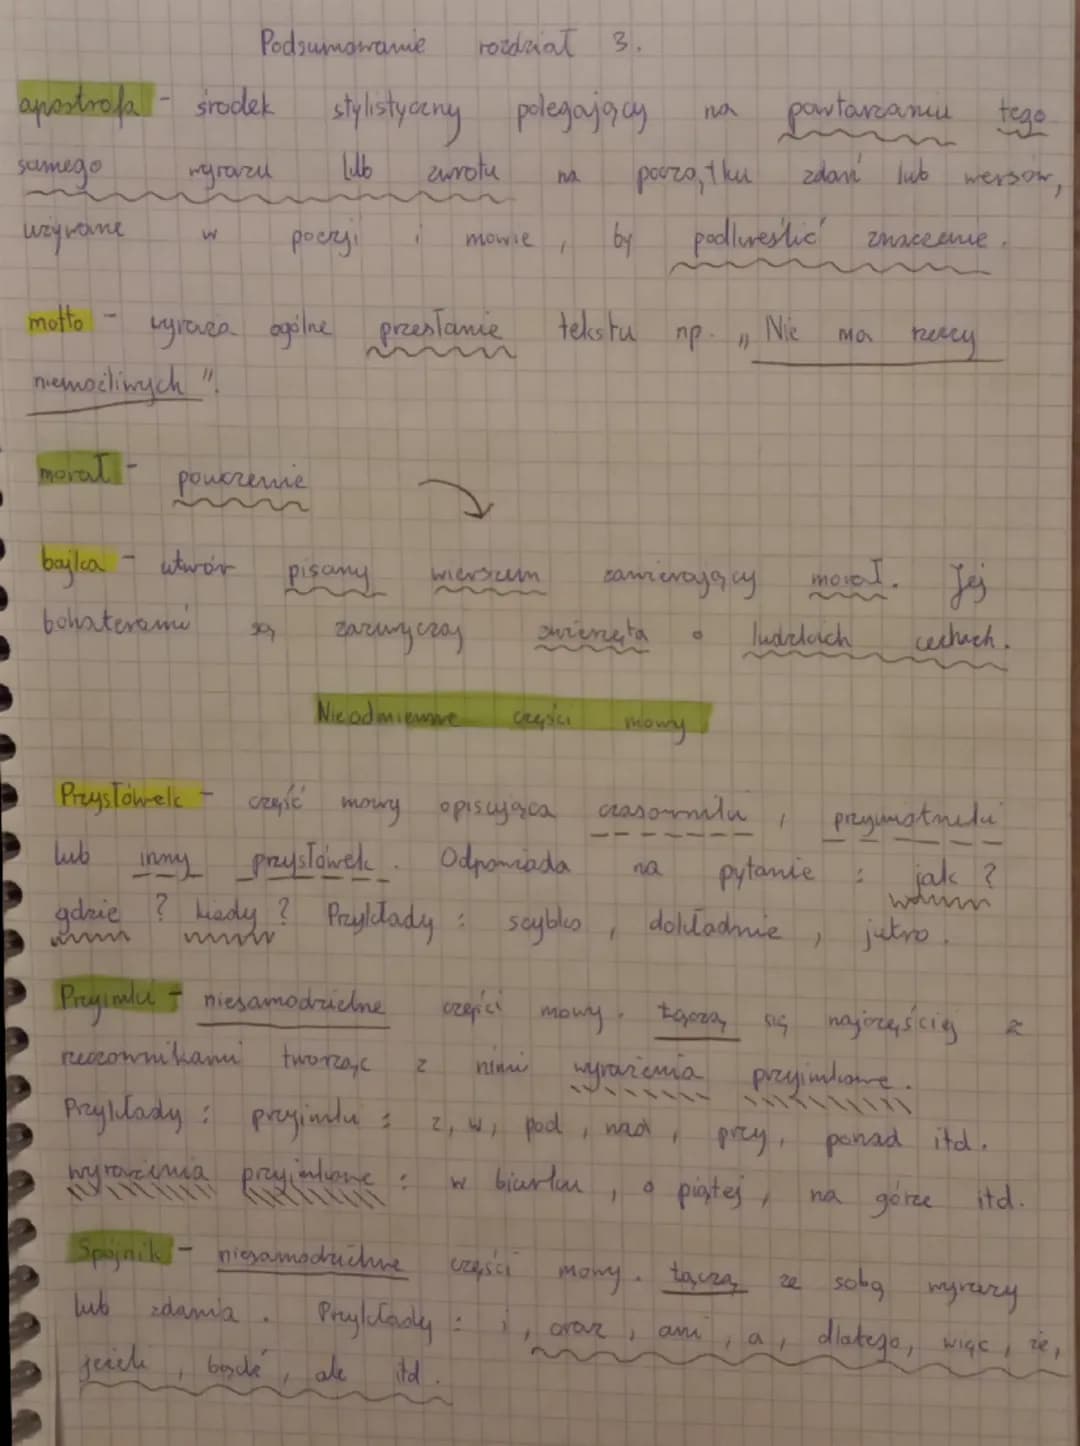 Podsumowanie rozdział 3.
apostrofa - środek stylistyczny polegający na powtarzaniu tego
samego wyrazu lub zwrotu na początku zdań lub wersów,
używane w poezji i mowie, by podkreślić znaczenie.
motto - wyraża ogólne przesłanie tekstu np. „Nie ma rzeczy
niemożliwych".
morał - pouczenie
bajka - utwór pisany wierszem zawierający morał. Jej
bohaterami są zazwyczaj zwierzęta o ludzkich cechach.
Nieodmienne części mowy
Przysłówek - część mowy opisująca czasowniki, przymiotniki
lub inny przysłówek. Odpowiada na pytanie : jak ?
gdzie ? kiedy ? Przykłady : szybko, dokładnie, jutro.
Przyimki - niesamodzielne części mowy. Łączą się najczęściej z
rzeczownikami tworząc z nimi wyrażenia przyimkowe.
Przykłady : przyimki : z, w, pod, nad, przy, ponad itd.
wyrażenia przyimkowe : w biurku, o piątej, na górze itd.
Spójnik - niesamodzielne części mowy. Łączą ze sobą wyrazy
lub zdania. Przykłady : i, oraz, ani, a, dlatego, więc, że,
jeżeli, bądź, ale itd.